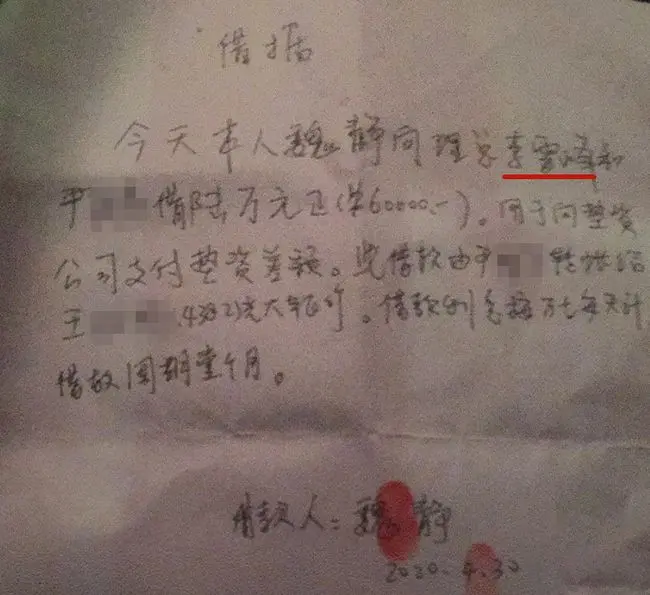 借据
今天本人魏静向李雪峰和
尹 借陆万元正(¥60000.-)。用于向垫资
公司支付垫资差额。此借款由尹 转账给
王 光大银行。借款利息按万七每天计
借款周期壹个月。
借款人：魏静
2020.4.30